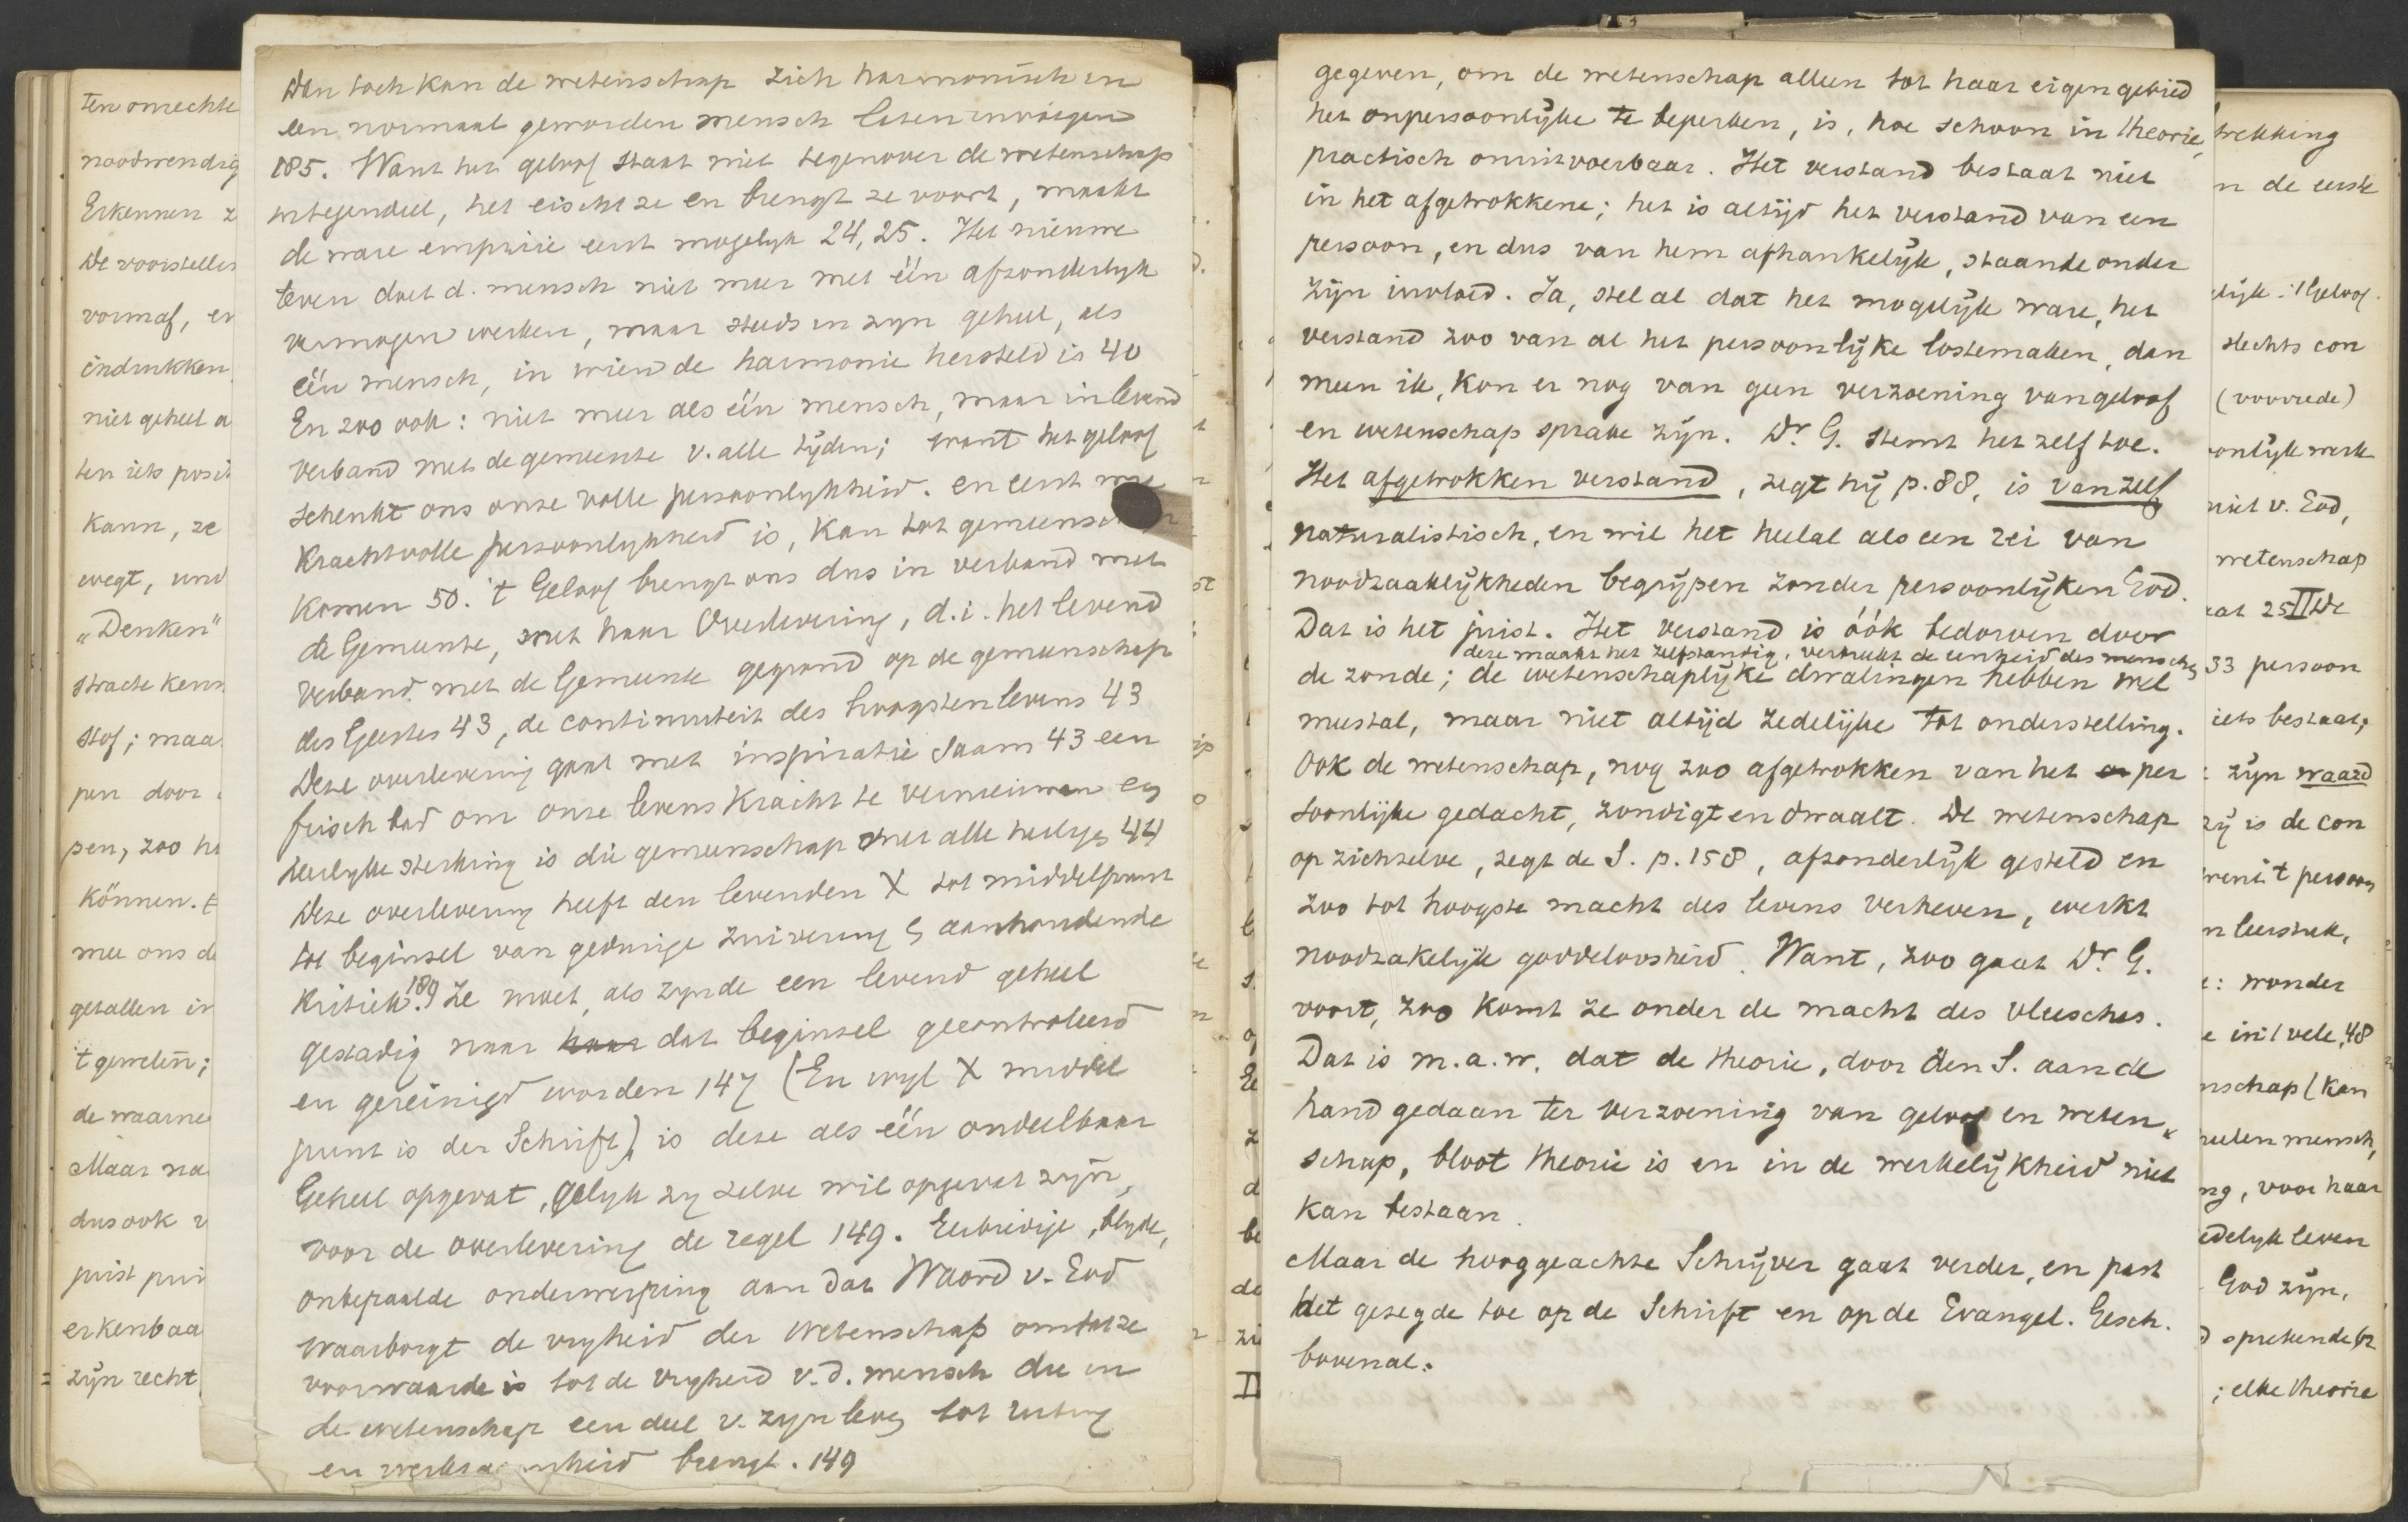 Dan toch kan de wetenschap zich harmonisch in
een normaal geworden mensch laten invoegen
185. Want het geloof staat niet tegenover de wetenschap
integendeel, het eischt ze en brengt ze voort, maakt
de ware empirie eerst mogelyk 24, 25. Het nieuwe
leven doet d. mensch niet meer met één afzonderlyk
vermogen werken, maar steeds in zyn geheel, als
één mensch, in wien de harmonie hersteld is 40
En zoo ook: niet meer als één mensch, maar in levend
verband met de gemeente v. alle tyden; want het geloof
schenkt ons onze volle persoonlykheid. en eerst wie
krachtvolle persoonlykheid is, kan tot gemeenschap
komen 50. 't Geloof brengt ons dus in verband met
de Gemeente, met haar Overlevering, d.i. het levend
verband met de Gemeente gegrond op de gemeenschap
des Geestes 43, de continuiteit des hoogsten levens 43
Deze overlevering gaat met inspiratie saam 43 een
frisch bad om onze levenskracht te vernieuwen en
heerlyke sterking is die gemeenschap met alle heilige 44
Deze overlevering heeft den levenden X tot middelpunt
tot beginsel van gedurige zuivering & aanhoudende
Kritiek. 189 Ze moet, als zynde een levend geheel
gestadig naar haar dat beginsel gecontroleerd
en gereinigd worden 147 (En wyl X middel
punt is der Schrift) is deze als één ondeelbaar
Geheel opgevat, gelyk zy zelve wil opgevat zyn,
voor de overlevering de regel 149. Eerbiedige, blyde,
onbepaalde onderwerping aan dat Woord v. God
waarborgt de vryheid der Wetenschap omdat ze
voorwaarde is tot de vryheid v.d. mensch die in
de wetenschap een deel v. zyn leven tot uiting
en werkzaamheid brengt. 149
ten onrechte
noodwendig
Erkennen z
De voorstellin
vormaf, en
indrukken
niet geheel a
ten iets posit
kann, ze
wegt, und
„Denken"
stracte kenn
stof; maa
pen door
pen, zoo h
können. E
mee ons d
getallen in
't gevoelen;
de waarne
Maar na
dus ook v
juist pui
erkenbaa
zijn recht
gegeven, om de wetenschap alleen tot haar eigen gebied
het onpersoonlijke te beperken, is, hoe schoon in theorie,
practisch onuitvoerbaar. Het verstand bestaat niet
in het afgetrokkene; het is altijd het verstand van een
persoon, en dus van hem afhankelijk, staande onder
zijn invloed. Ja, stel al dat het mogelijk ware, het
verstand zoo van al het persoonlijke lostemaken, dan
meen ik, kon er nog van geen verzoening van geloof
en wetenschap sprake zijn. Dr. G. stemt het zelf toe.
Het afgetrokken verstand, zegt hij p. 88, is vanzelf
naturalistisch, en wil het heelal als een rei van
noodzaaklijkheden begrijpen zonder persoonlijken God.
Dat is het juist. Het verstand is óók bedorven door
deze maakt het zelfstandig, verbreekt de eenheid des menschen
de zonde; de wetenschaplijke dwalingen hebben wel
meestal, maar niet altijd zedelijke tot onderstelling.
Ook de wetenschap, nog zoo afgetrokken van het per
soonlijke gedacht, zondigt en dwaalt. De wetenschap
op zichzelve, zegt de S. p. 158, afzonderlijk gesteld en
zoo tot hoogste macht des levens verheven, werkt
noodzakelijk goddeloosheid. Want, zoo gaat Dr. G.
voort, zoo komt ze onder de macht des vleesches.
Dat is m.a.w. dat de theorie, door den S. aan de
hand gedaan ter verzoening van geloof en weten
schap, bloot theorie is en in de werkelijkheid niet
kan bestaan.
Maar de hooggeachte Schrijver gaat verder, en past
het gezegde toe op de Schrift en op de Evangel. Gesch.
bovenal.
trekking
n de eerste
elijk. 1 Geloof
slechts con
(voorrede)
oonlijk werk
niet v. God,
wetenschap
aat 25 II De
33 persoon
iets bestaat,
zijn waard
zij is de con
n leerstuk,
: wonder
e in: 1 vele, 48
nschap (kan
heelen mensch,
ng, voor haar
edelyk leven
God zijn,
d sprekende br
; elke theorie